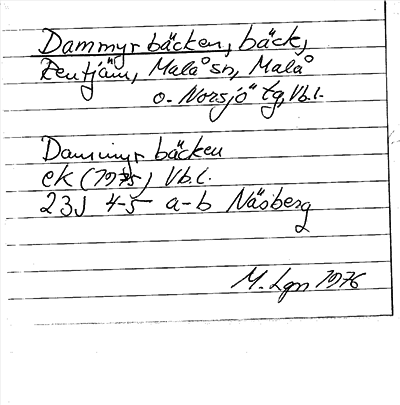 Dammyrbäcken, bäck,
Rentjärn, Malå sn, Malå
o. Norsjö tg, Vb.l.
Dammyrbäcken
ek (1975) Vb.l.
23J 4-5 a-b Näsberg
M. Lgn 1976